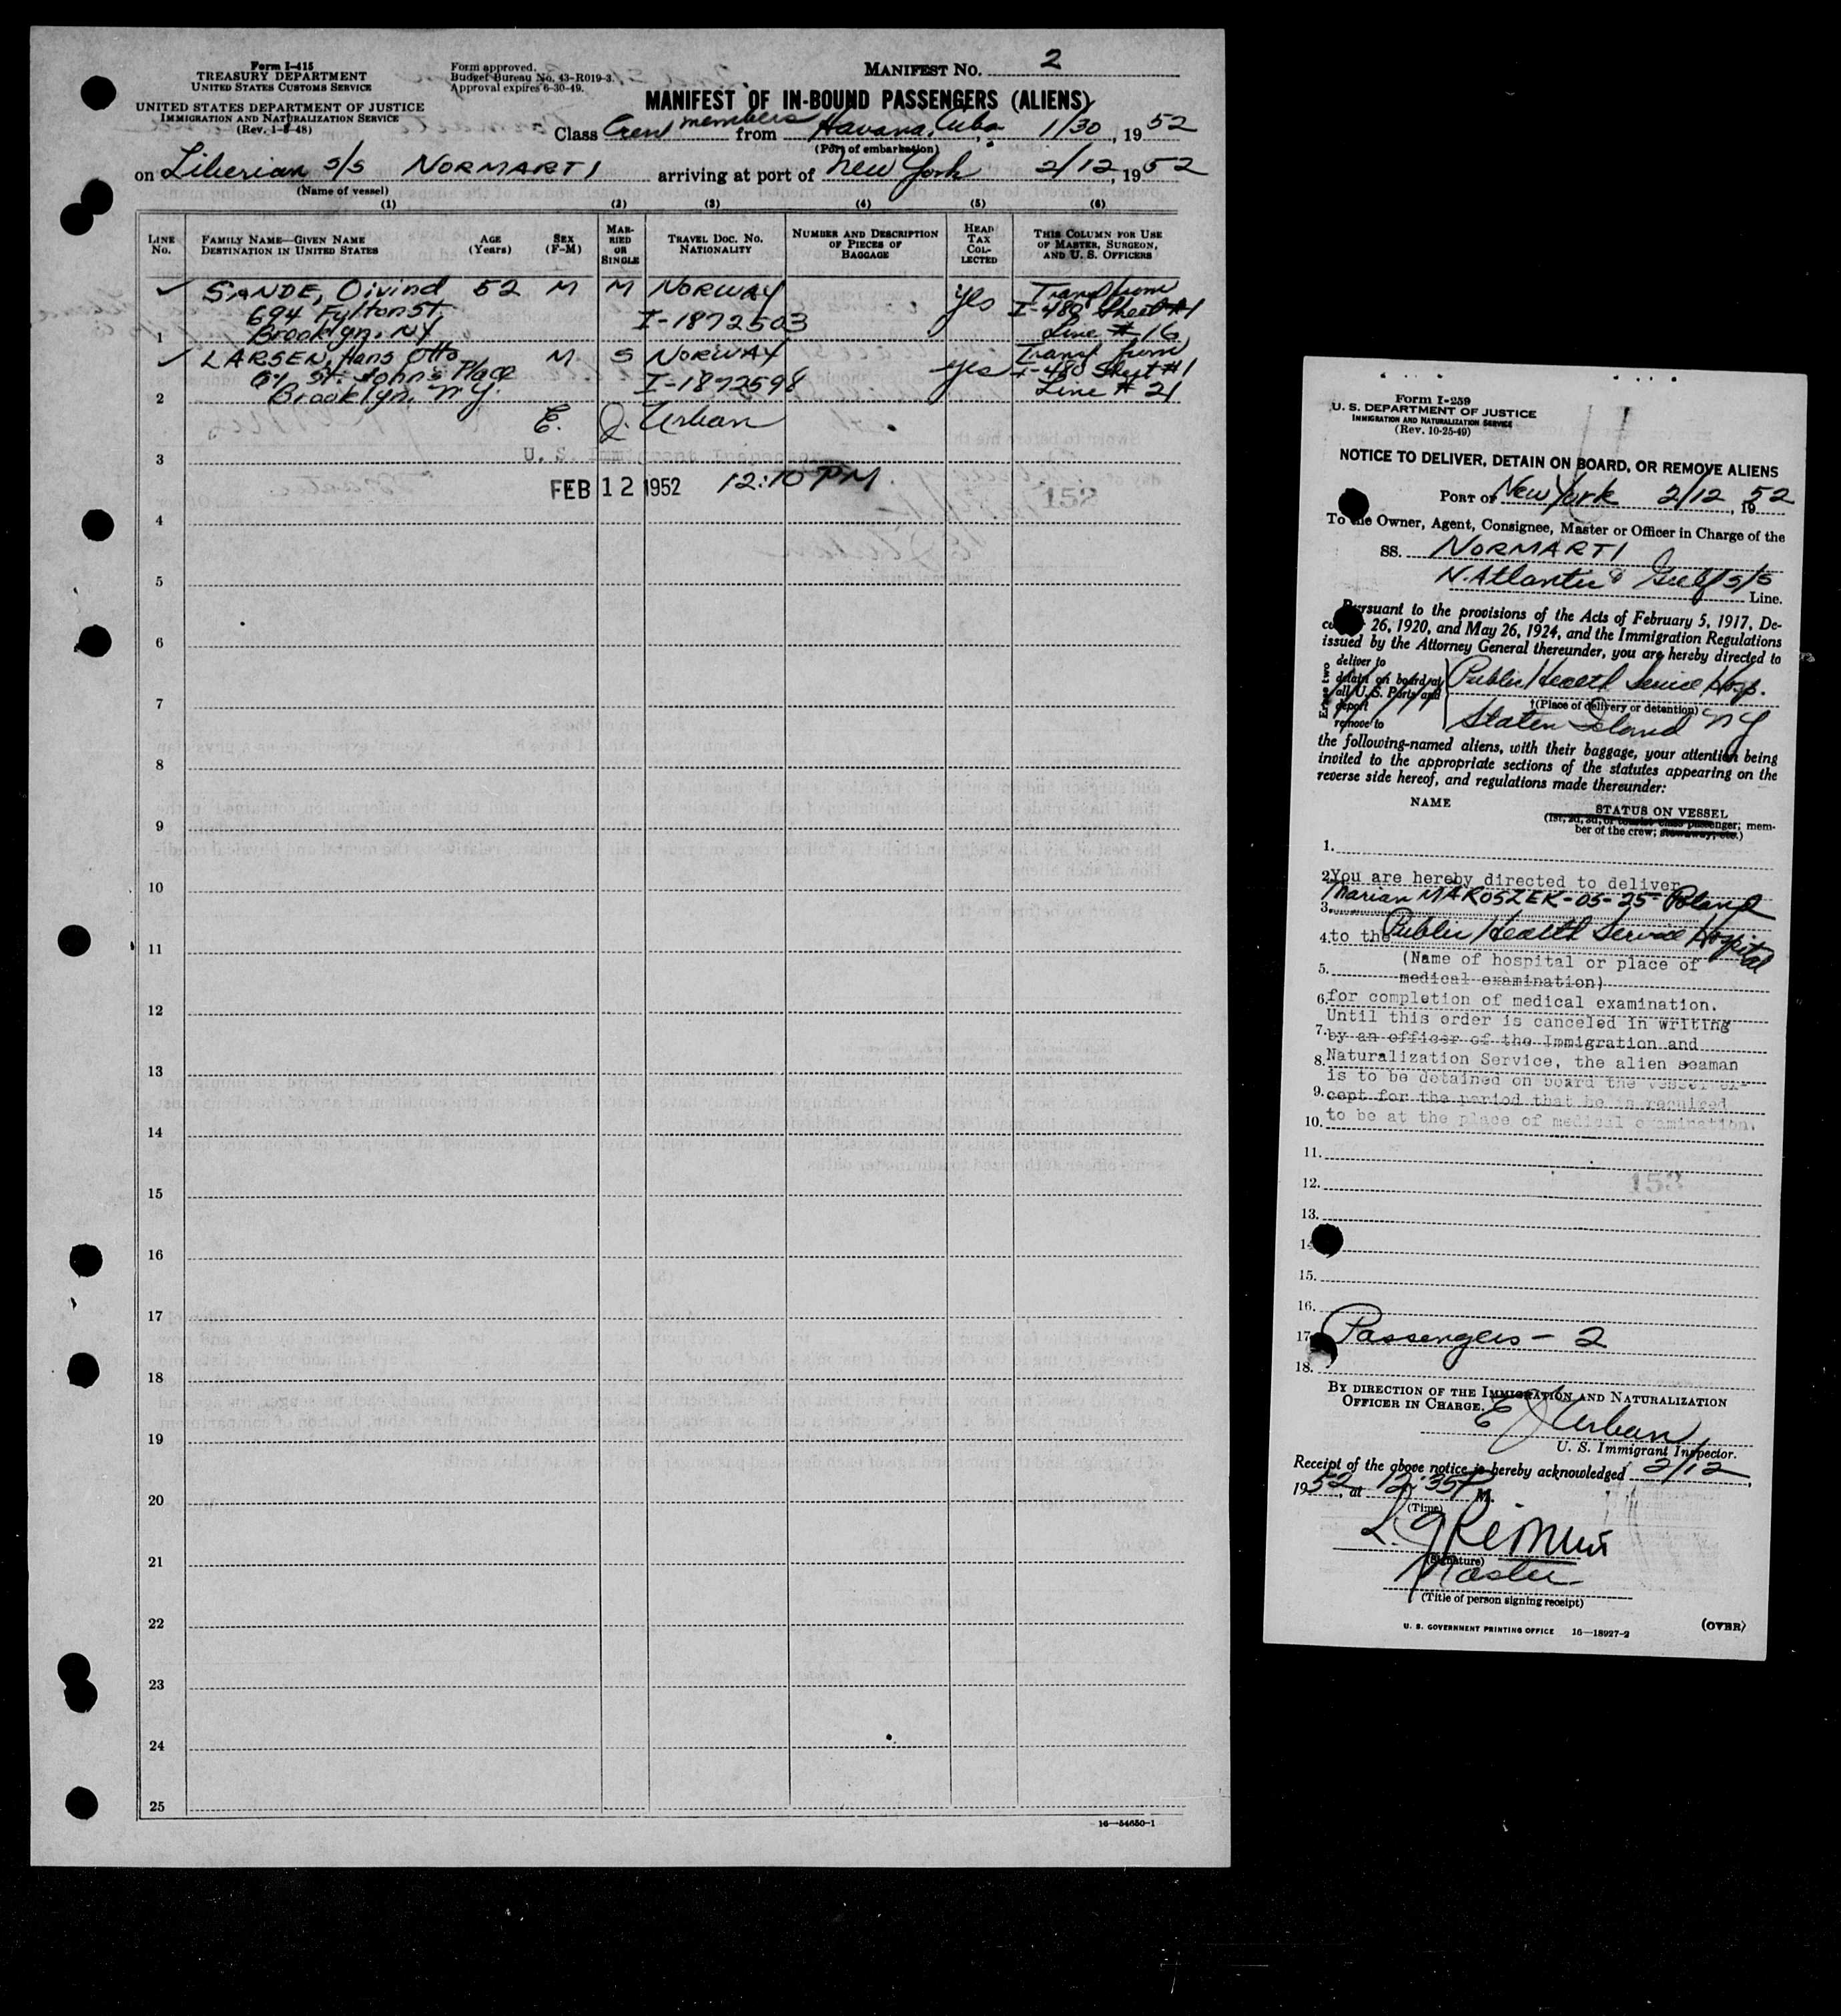 Form I-415
TREASURY DEPARTMENT
UNITED STATES CUSTOMS SERVICE
UNITED STATES DEPARTMENT OF JUSTICE
IMMIGRATION AND NATURALIZATION SERVICE
(Rev. 1-1-48)
Form approved.
Budget Bureau No. 43-R019-3.
Approval expires 6-30-49.
MANIFEST NO. 2
MANIFEST OF IN-BOUND PASSENGERS (ALIENS)
Class Crew members from Havana, Cuba, 1/30, 1952
(Port of embarkation)
on Liberian S/S NORMARTI arriving at port of New York 2/12, 1952
(Name of vessel)
(1) (2) (3) (4) (5) (6)
LINE NO. FAMILY NAME—GIVEN NAME DESTINATION IN UNITED STATES AGE (Years) SEX (F-M) MARRIED OR SINGLE TRAVEL DOC. NO. NATIONALITY NUMBER AND DESCRIPTION OF PIECES OF BAGGAGE HEAD TAX COLLECTED THIS COLUMN FOR USE OF MASTER, SURGEON, AND U. S. OFFICERS
✓ SANDE, Oivind 52 M M NORWAY yes Transf from
694 Fulton St. I-1872503 I-480 Sheet #1
1 Brooklyn, NY Line #16
✓ LARSEN, Hans Otto M S NORWAY yes Transf from
64 St. Johns Place I-1872598 I-480 Sheet #1
2 Brooklyn, N.Y. Line #21
E. J. Urban
3 U. S. Immigrant Inspector
FEB 12 1952 12:10 PM
152
4
5
6
7
8
9
10
11
12
13
14
15
16
17
18
19
20
21
22
23
24
25
16—54650-1
Form I-259
U. S. DEPARTMENT OF JUSTICE
IMMIGRATION AND NATURALIZATION SERVICE
(Rev. 10-25-49)
NOTICE TO DELIVER, DETAIN ON BOARD, OR REMOVE ALIENS
PORT OF New York 2/12, 1952
To the Owner, Agent, Consignee, Master or Officer in Charge of the
SS. NORMARTI
N. Atlantic & Gulf S/S Line.
Pursuant to the provisions of the Acts of February 5, 1917, De-
26, 1920, and May 26, 1924, and the Immigration Regulations
issued by the Attorney General thereunder, you are hereby directed to
Erase two
deliver to
detain on board at
all U.S. Ports and
deport
remove to
Public Health Service Hosp.
†(Place of delivery or detention)
Staten Island NY
the following-named aliens, with their baggage, your attention being
invited to the appropriate sections of the statutes appearing on the
reverse side hereof, and regulations made thereunder:
NAME STATUS ON VESSEL
(1st, 2d, 3d, or tourist class passenger; mem-
ber of the crew; stowaway, etc.)
1.
2. You are hereby directed to deliver
Marian MAROSZEK-OS-25-Poland
3.
4. to the Public Health Service Hospital
(Name of hospital or place of
5. medical examination)
6. for completion of medical examination.
Until this order is canceled in writing
7. by an officer of the Immigration and
8. Naturalization Service, the alien seaman
is to be detained on board the vessel ex-
9. cept for the period that he is required
10. to be at the place of medical examination.
11.
12. 153
13.
14
15.
16.
17 Passengers - 2
18.
BY DIRECTION OF THE IMMIGRATION AND NATURALIZATION
OFFICER IN CHARGE.
E J Urban
U. S. Immigrant Inspector.
Receipt of the above notice is hereby acknowledged 2/12,
1952, at 12:35 P M.
(Time)
(Signature)
Master
(Title of person signing receipt)
U. S. GOVERNMENT PRINTING OFFICE 16—18927-2 (OVER)